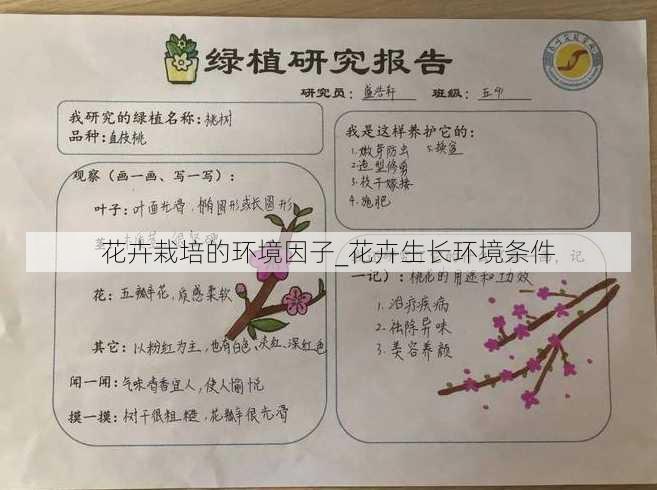 绿植研究报告
研究员：盛浩轩 班级：五(4)
我研究的绿植名称：桃树
品种：直枝桃
观察（画一画、写一写）：
叶子：叶面光滑，椭圆形或长圆形
花卉栽培的环境因子_花卉生长环境条件
花：五瓣花，质感柔软
其它：以粉红为主，也有白色、淡红、深红色
闻一闻：气味清香宜人，使人愉悦
摸一摸：树干很粗糙，花瓣很光滑
我是这样养护它的：
1.嫩芽防虫 5.换盆
2.造型修剪
3.枝干嫁接
4.施肥
记
一记）：桃花的用途和功效
1.治疗疾病
2.祛除异味
3.美容养颜